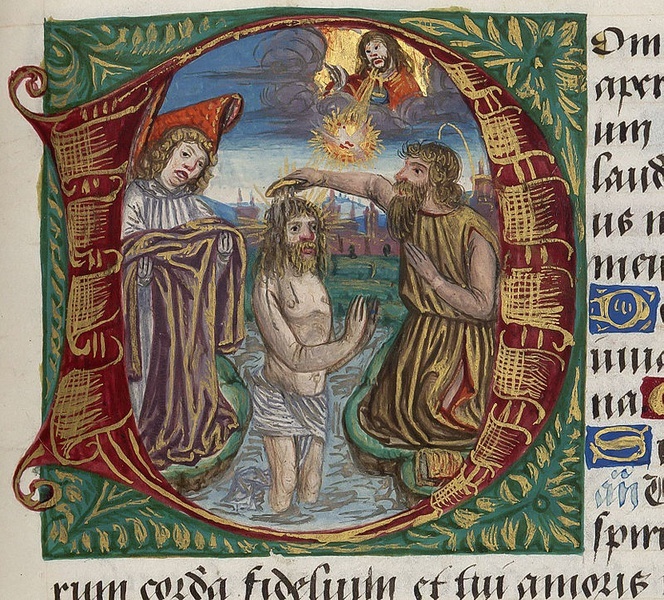 Dom
aper
um
laud
us
meu
D
na
S
an
spiri
rum corda fidelium et tui amoris